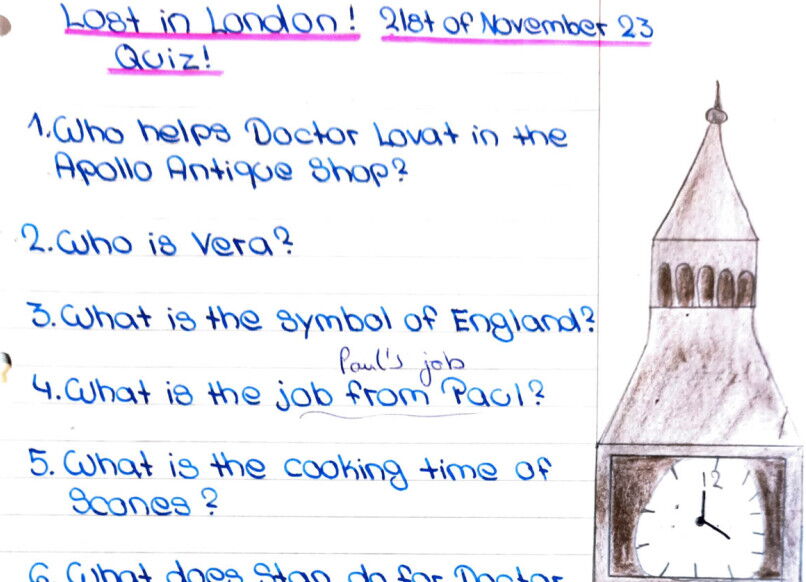 Lost in London! 21st of November 23
Quiz!
1. Who helps Doctor Lovat in the
Apollo Antique Shop?
2. Who is Vera?
3. What is the symbol of England?
Paul's job
4. What is the job from Paul?
5. What is the cooking time of
Scones?
6. What does Stan do for Doctor
12